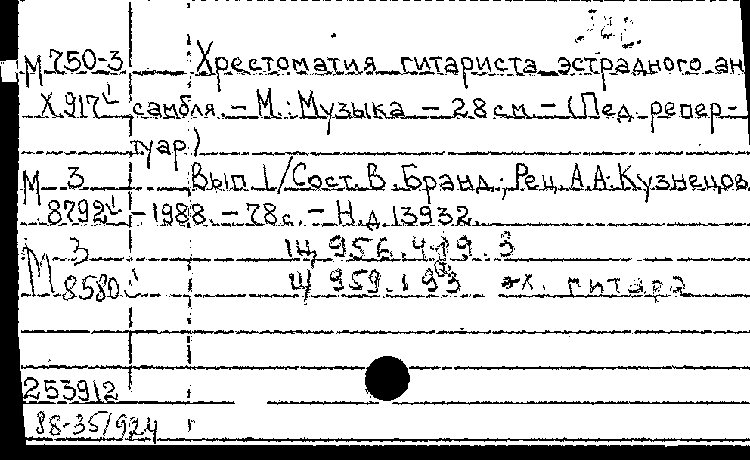 М 750-3 Хрестоматия гитариста эстрадного ан
Х 917 самбля. – М.: Музыка – 28 см. – (Пед. репер-
туар)
М 3 Вып 1/Сост. В. Бранд; Рец. А.А. Кузнецов
8792 – 1988. – 78 с. – Н.д. 13932.
М 3 Щ 956.4
8580 Щ 959.1 гитара
253912
88-35/924